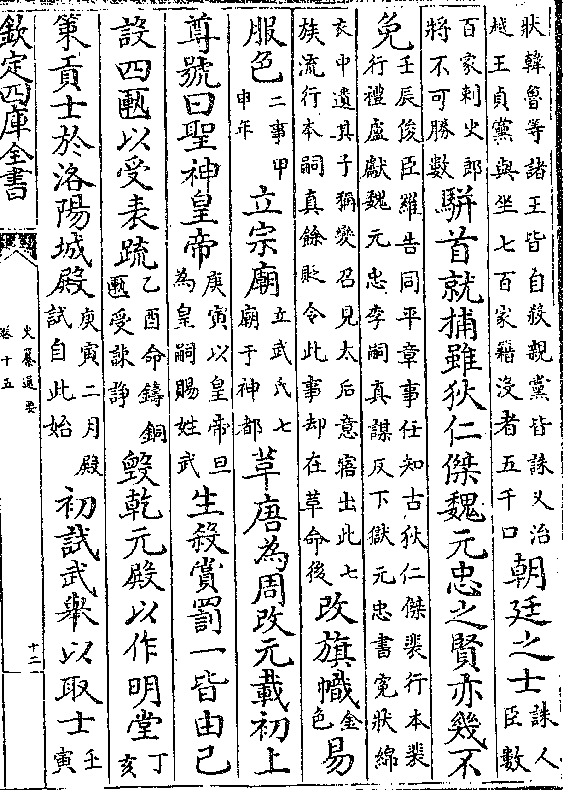 狀韓魯等諸王皆自殺親黨皆誅又治越王貞黨與坐七百家籍沒者五千口朝廷之士誅人臣數
百家刺史郎將不可勝數駢首就捕雖狄仁傑魏元忠之賢亦幾不
免壬辰俊臣羅告同平章事任知古狄仁傑裴行本裴行禮盧獻魏元忠李嗣真謀反下獄元忠書寃狀綿
衣中遺其子稱變召見太后意寤出此七族流行本嗣真餘貶令此事却在革命後改旗幟金色易
服色二事甲申年立宗廟立武氏七廟于神都革唐為周改元載初上
尊號曰聖神皇帝庚寅以皇帝旦為皇嗣賜姓武生殺賞罰一皆由己
設四匭以受表疏乙酉命鑄銅匭受諫諍毀乾元殿以作明堂丁亥
策貢士於洛陽城殿庚寅二月殿試自此始初試武舉以取士壬寅
欽定四庫全書
史纂通要
卷十五
十二